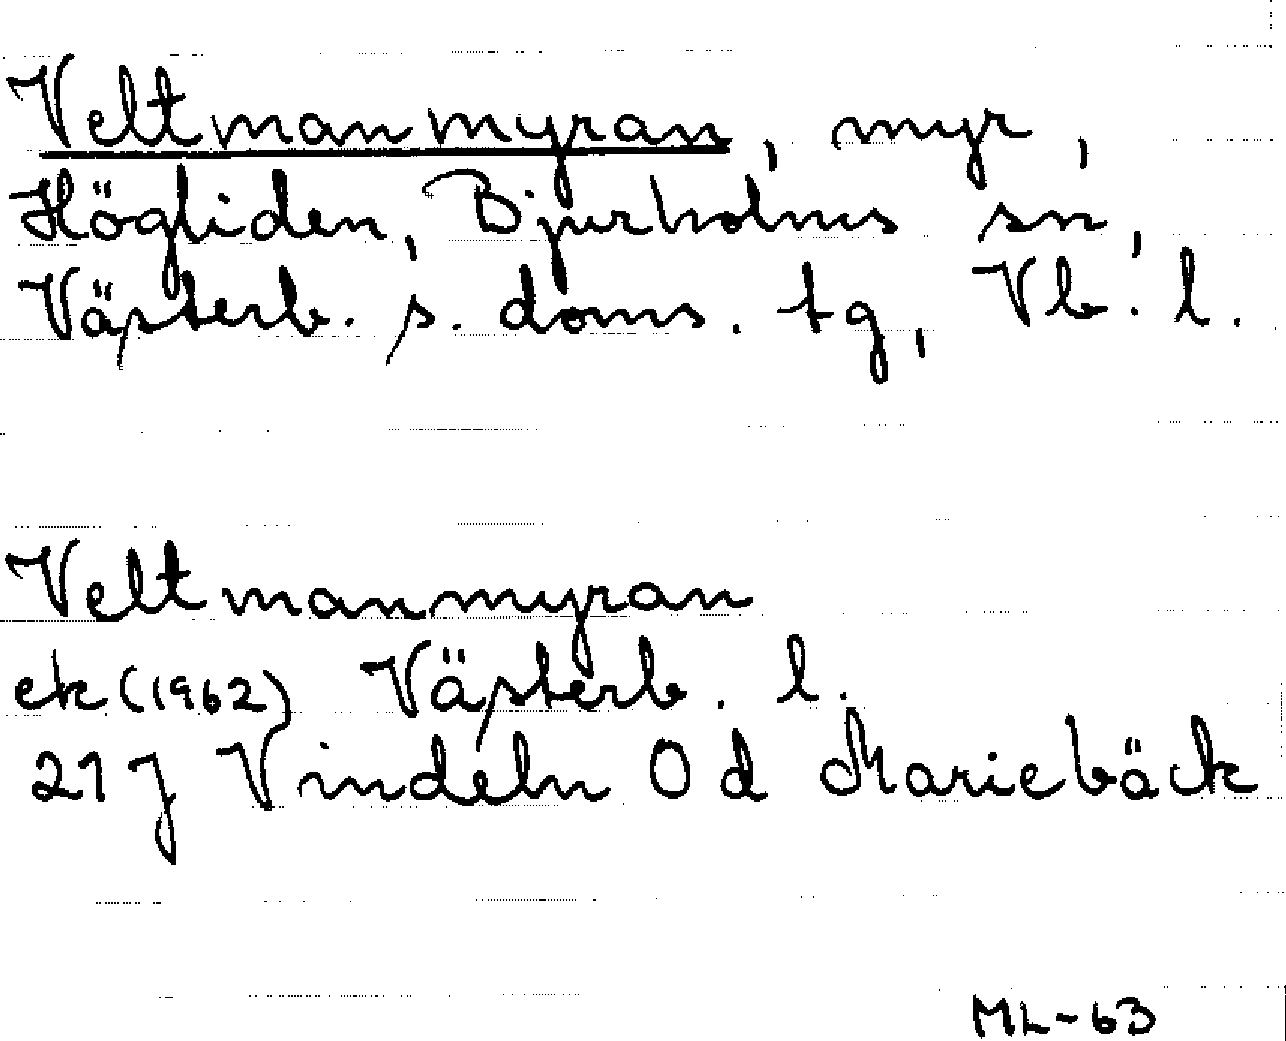 Veltmanmyran, myr,
Högliden, Bjurholms sn,
Västerb. s. doms. tg, Vb. l.
Veltmanmyran
ek (1962) Västerb. l.
21 J Vindeln 0 d Mariebäck
ML-63